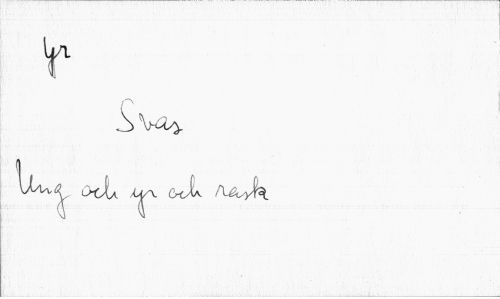 yr
Svas
Ung och yr och rask